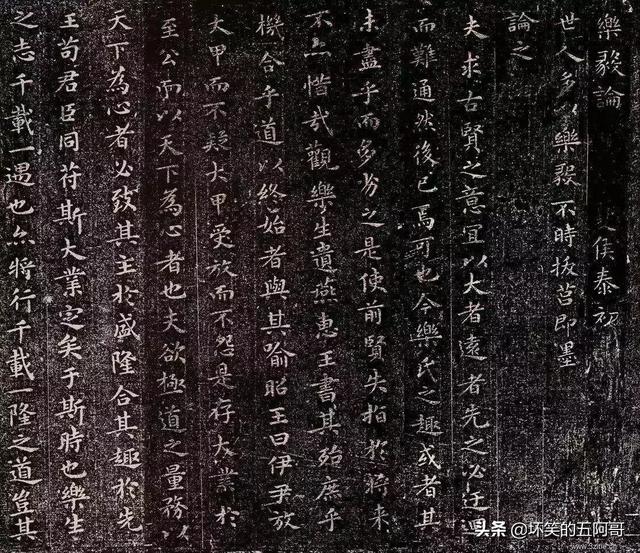 樂毅論 侯泰初
世人多以樂毅不時拔莒即墨
論之
夫求古賢之意宜以大者遠者先之必迂迴
而難通然後已焉可也今樂氏之趣或者其
未盡乎而多劣之是使前賢失指於將来
不亦惜哉觀樂生遺燕惠王書其殆庶乎
機合乎道以終始者與其喻昭王曰伊尹放
大甲而不疑大甲受放而不怨是存大業於
至公而以天下為心者也夫欲極道之量務以
天下為心者必致其主於盛隆合其趣於先
王苟君臣同苻斯大業定矣于斯時也樂生
之志千載一遇也亦將行千載一隆之道豈其
头条 @坏笑的五阿哥